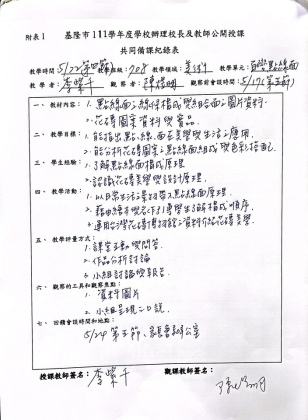 附表1
基隆市 111學年度學校辦理校長及教師公開授課
共同備課紀錄表
教學時間：5/22(第四節) 教學班級：708 教學領域：美術 教學單元：點線面
教學者：李紫千 觀察者： 觀察前會談時間：5/17(第五節)
一、 教材內容： 1. 點線面之線構成與組合面之圖片資料.
2. 花磚圖案資料與實品.
二、 教學目標： 1. 能指出點、線、面在美學與生活之應用.
2. 能分析花磚圖案之點線面組成與色彩
三、 學生經驗： 1. 了解點線面構成原理
2. 認識花磚美學與設計原理.
四、 教學活動： 1. 以日常生活實物 點線面原理.
2. 藉由 引導學生了解構成順序.
3. 運用台灣花磚博物館之資料介紹花磚美學.
五、 教學評量方式： 1. 課堂互動與問答.
2. 作品分析討論
3. 小組討論與報告.
六、 觀察的工具和觀察焦點：
1. 資料圖片
2. 小組呈現之口說.
七、 回饋會談時間和地點：
5/24 第五節. 辦公室
授課教師簽名： 李紫千 觀課教師簽名：